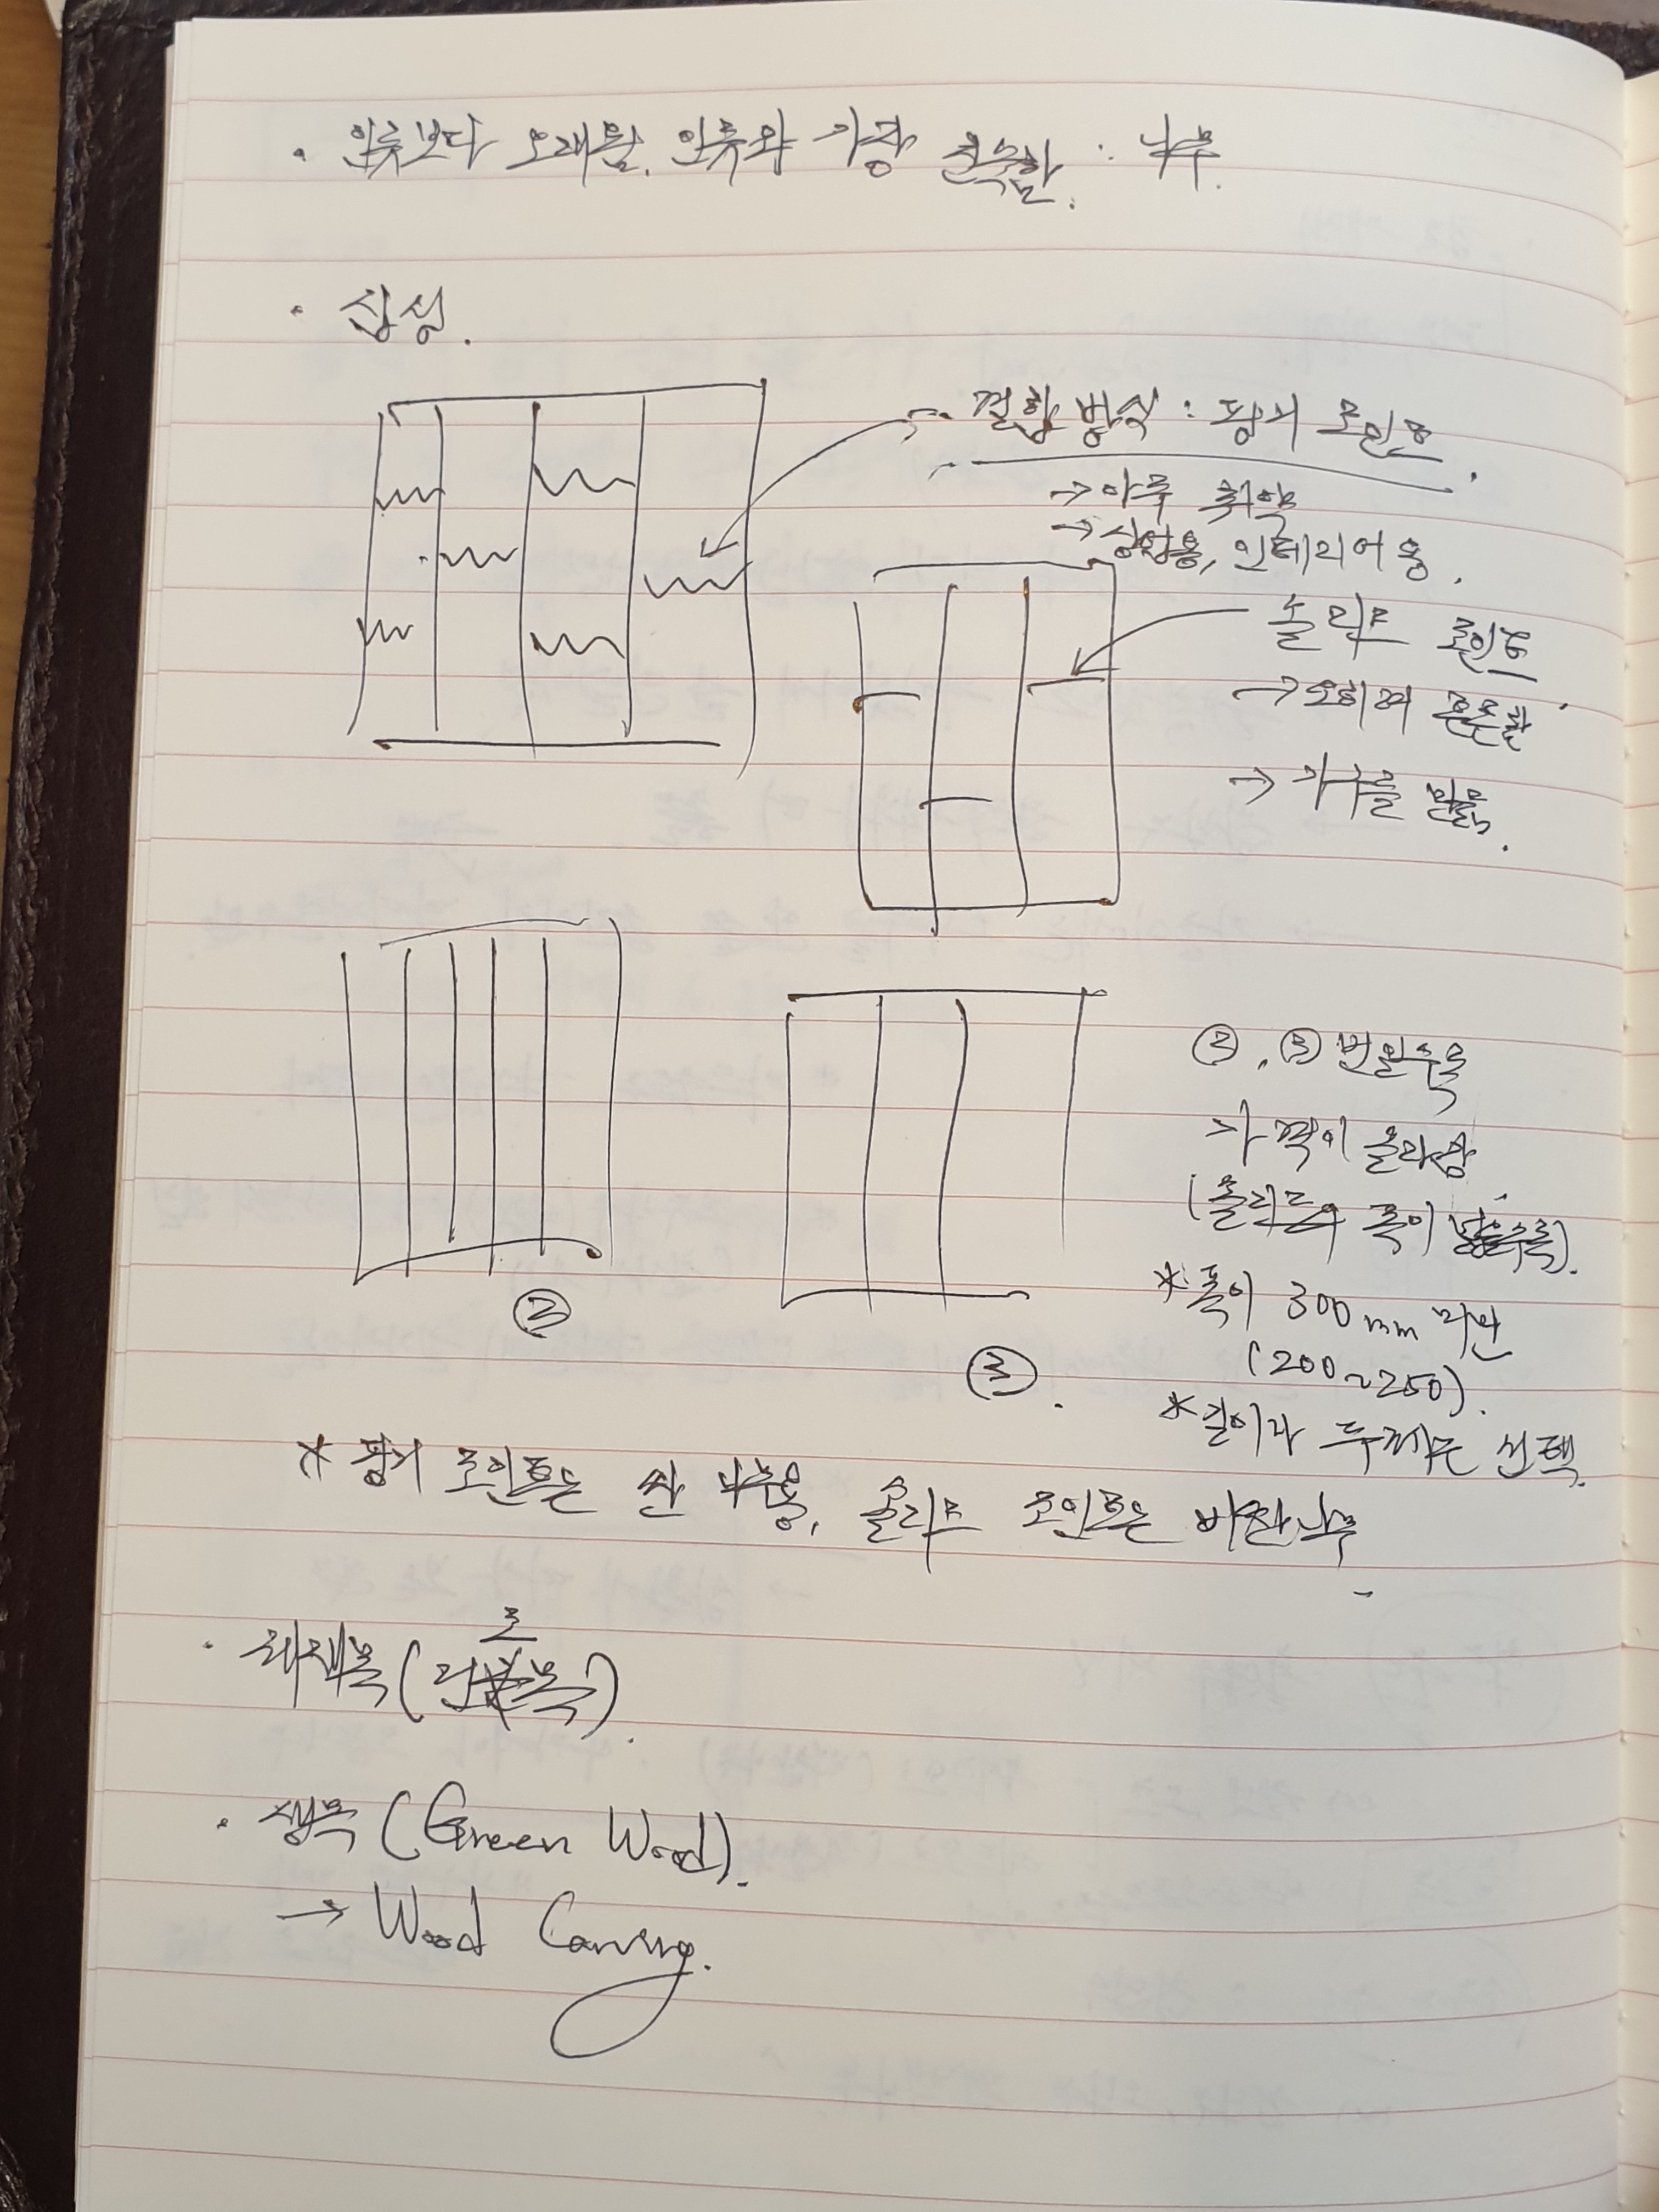 · 인류보다 오래됨. 인류와 가장 친숙함 : 나무.
· 심성.
결합 방식 : 핑거 조인트.
→ 아주 취약
→ 상업용, 인테리어 용.
솔리드 조인트
→ 오히려 튼튼함.
→ 가구를 만듦.
②, ③ 번일수록
가격이 올라감
(솔리드의 폭이 넓을수록).
* 폭이 300mm 미만
(200~250).
* 길이나 두께는 선택.
②
③.
* 핑거 조인트는 싼 나무용, 솔리드 조인트는 비싼나무
· 제재목
· 생목 (Green Wood).
→ Wood Carving.